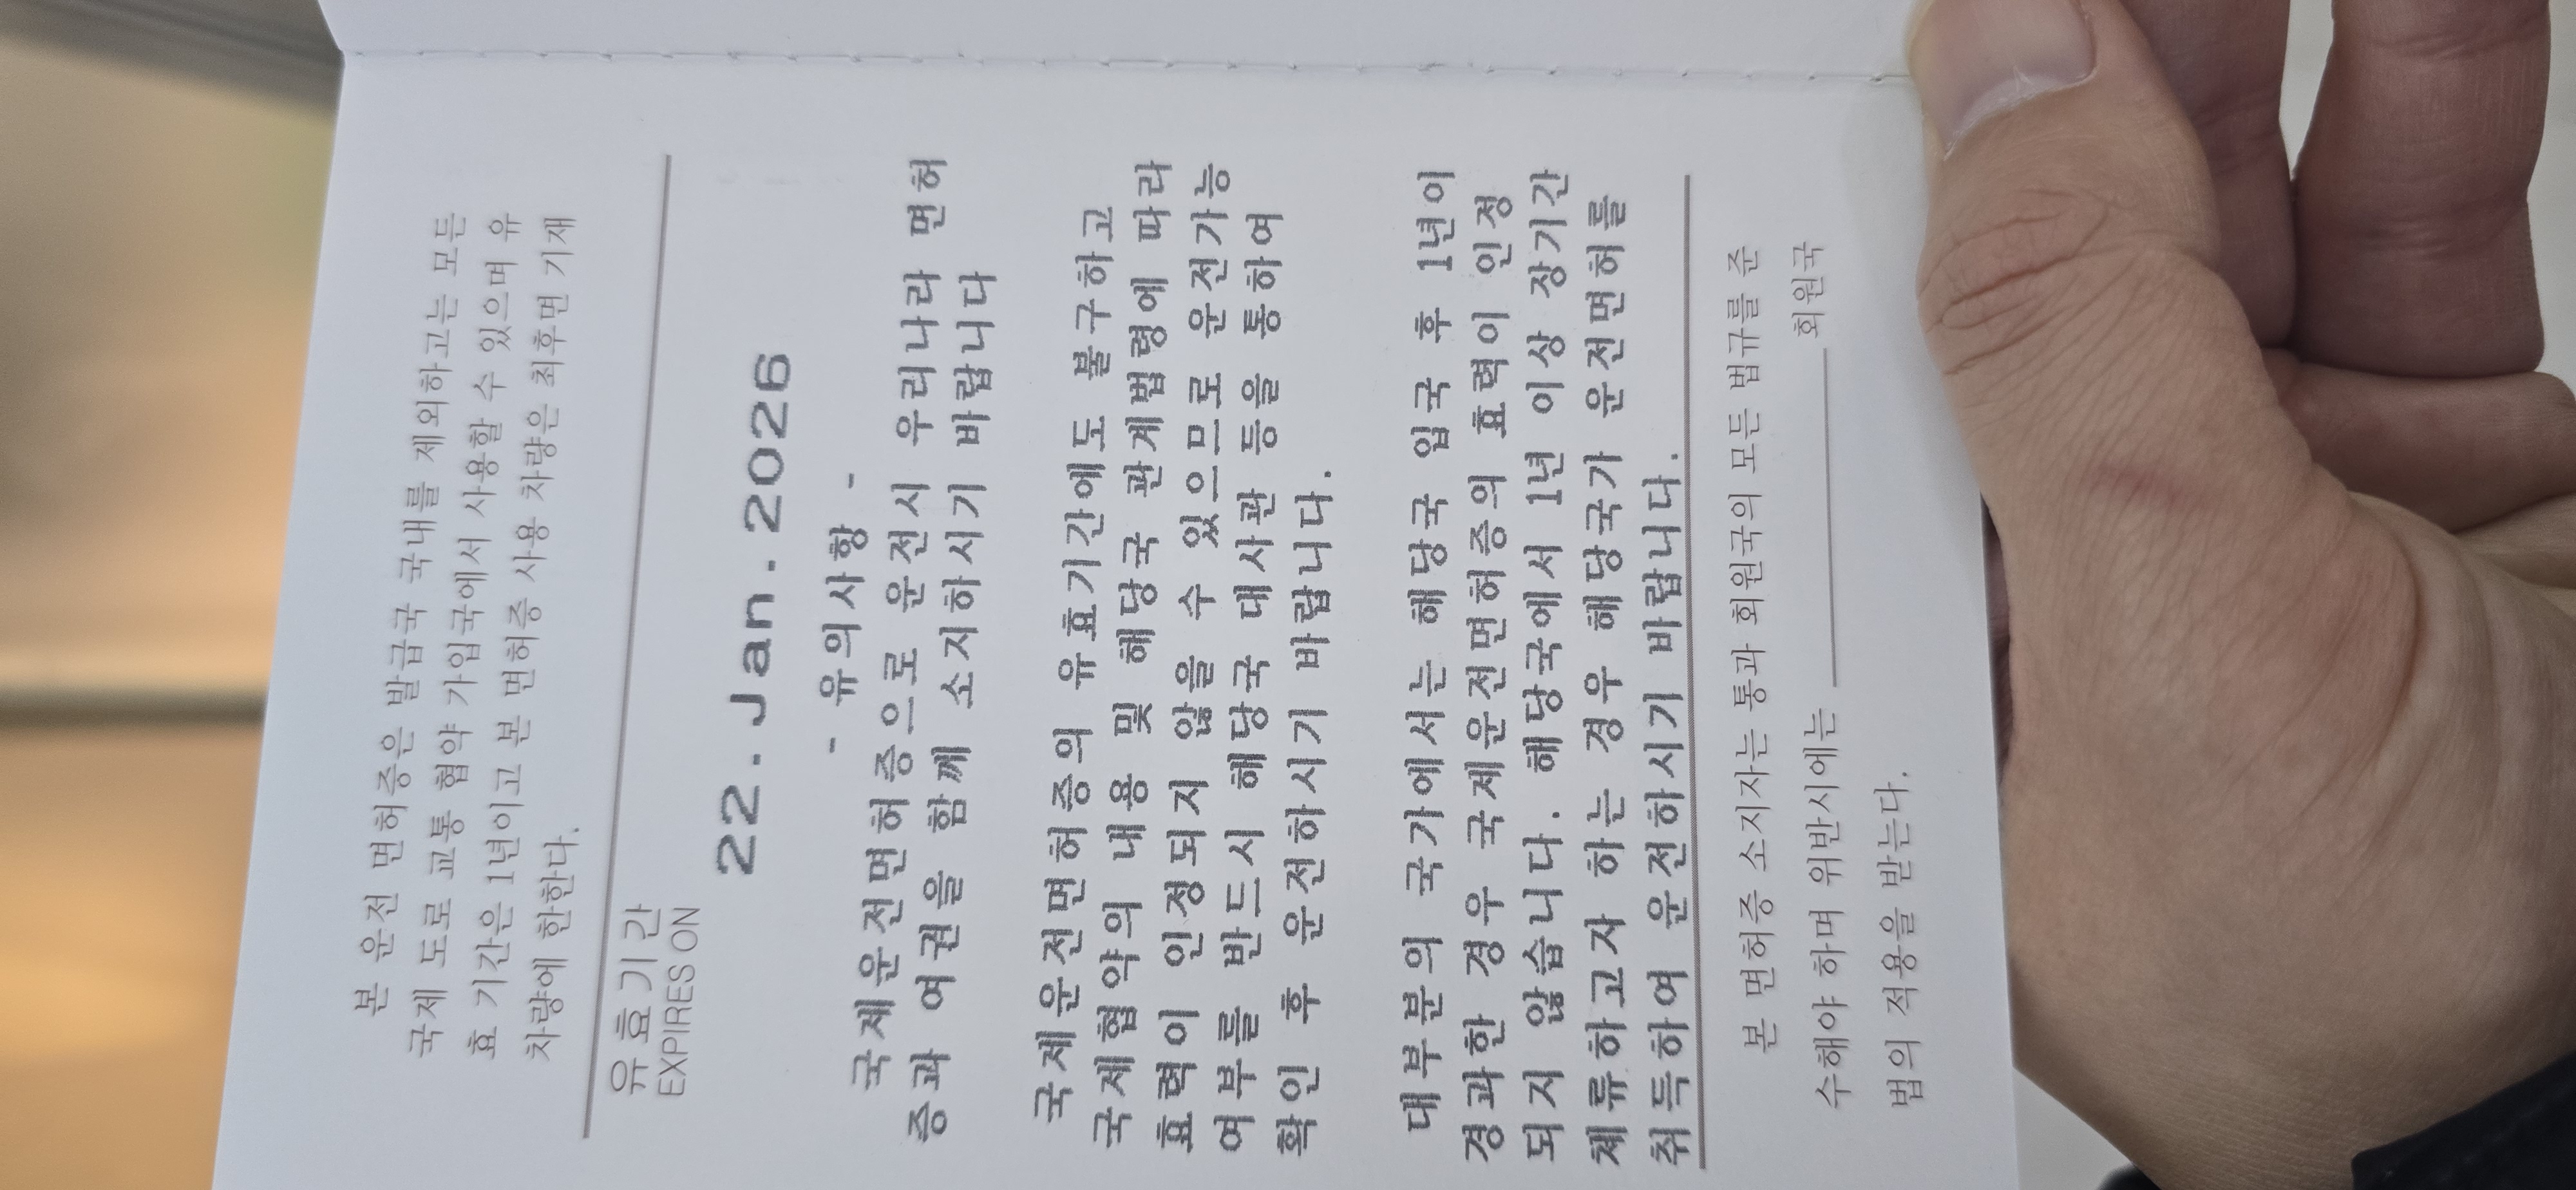 본 운전 면허증은 발급국 국내를 제외하고는 모든
국제 도로 교통 협약 가입국에서 사용할 수 있으며 유
효 기간은 1년이고 본 면허증 사용 차량은 최후면 기재
차량에 한한다.
유효기간
EXPIRES ON
22. Jan. 2026
- 유의사항 -
국제운전면허증으로 운전시 우리나라 면허
증과 여권을 함께 소지하시기 바랍니다
국제운전면허증의 유효기간에도 불구하고
국제협약의 내용 및 해당국 관계법령에 따라
효력이 인정되지 않을 수 있으므로 운전가능
여부를 반드시 해당국 대사관 등을 통하여
확인 후 운전하시기 바랍니다.
대부분의 국가에서는 해당국 입국 후 1년이
경과한 경우 국제운전면허증의 효력이 인정
되지 않습니다. 해당국에서 1년 이상 장기간
체류하고자 하는 경우 해당국가 운전면허를
취득하여 운전하시기 바랍니다.
본 면허증 소지자는 통과 회원국의 모든 법규를 준
수해야 하며 위반시에는 ________ 회원국
법의 적용을 받는다.